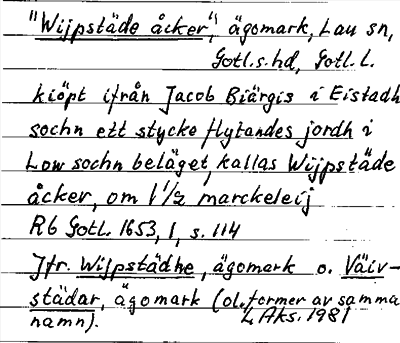 "Wijpstäde åcker", ägomark, Lau sn,
Gotl.s.hd, Gotl. L.
kiöpt ifrån Jacob Biärgis i Eistadh
sochn ett stycke flytandes jordh i
Low sochn beläget, kallas Wijpstäde
åcker, om 1 1/2 marckeleij
Rb Gotl. 1653, 1, s. 114
Jfr. Wijpstädhe, ägomark o. Väiv-
städar, ägomark (ol. former av samma
namn).
L Aks. 1981